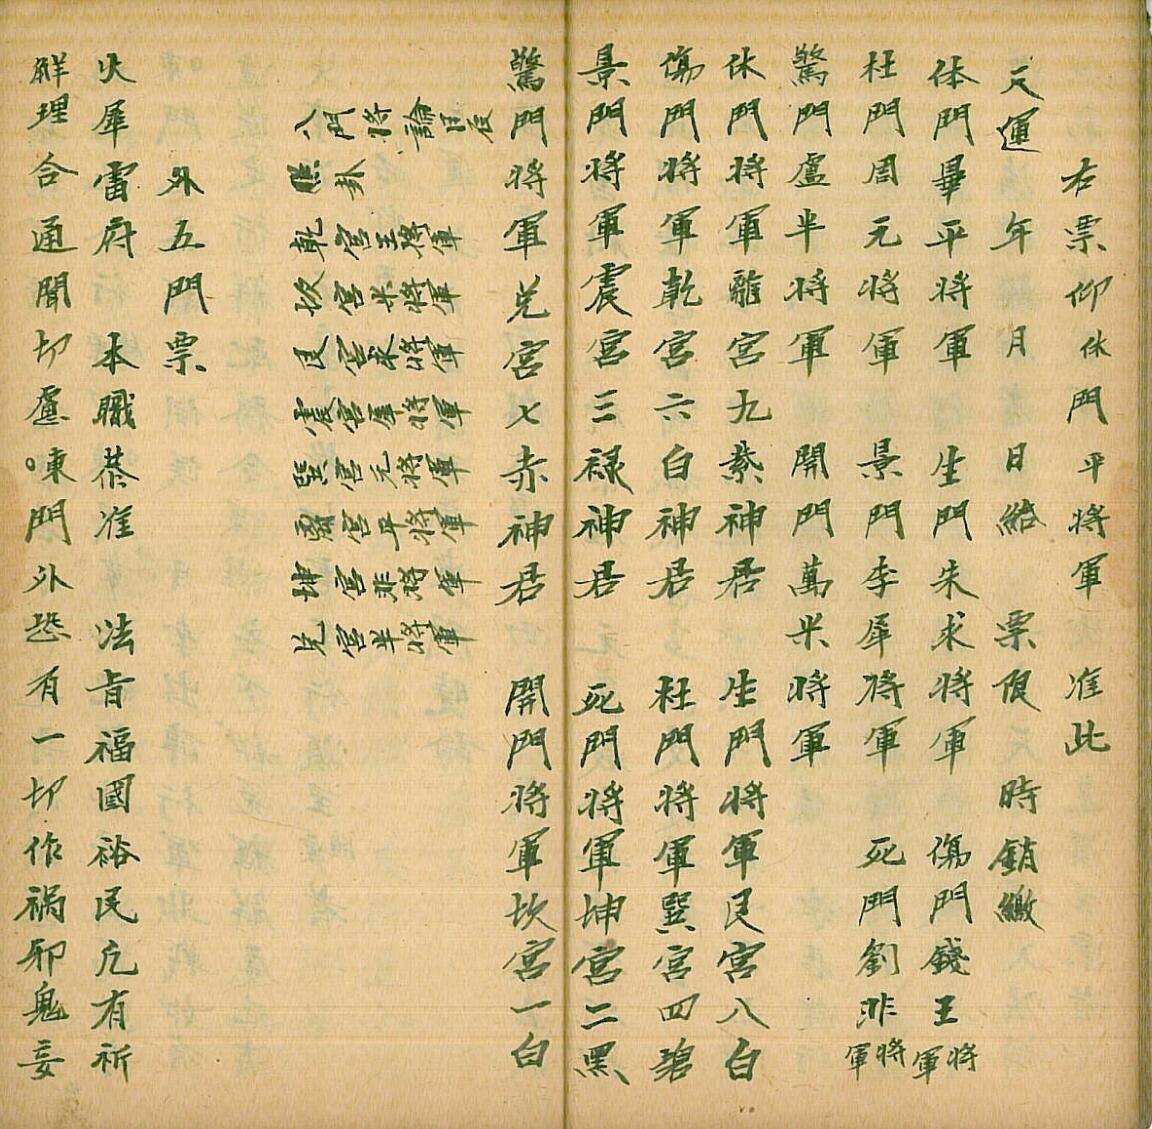 右票仰休門平將軍 准此
天運 年 月 日給 票限 時銷繳
休門畢平将軍 生門朱求将軍 傷門錢王將軍
杜門周元将軍 景門李犀将軍 死門劉非將軍
驚門盧半将軍 開門萬米将軍
休門将軍離宮九紫神居 生門将軍艮宮八白
傷門将軍乾宮六白神居 杜門将軍巽宮四碧
景門将軍震宮三禄神居 死門将軍坤宮二黑
驚門将軍兌宮七赤神居 開門将軍坎宮一白
八門将論
卦
乾宮王将軍
坎宮米将軍
艮宮求将軍
震宮犀将軍
巽宮元将軍
離宮平将軍
坤宮非将軍
兌宮半将軍
外五門票
火犀雷府 本職恭准 法旨福國裕民凡有祈
鮮理合通聞切慮㖦門外恐有一切作祸邪鬼妄